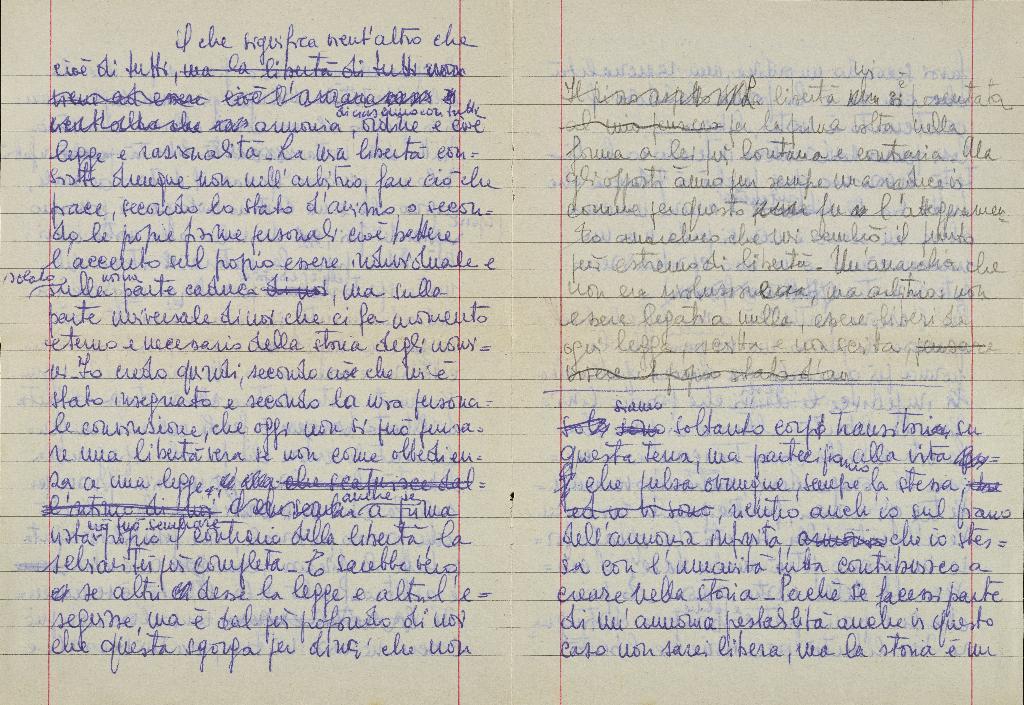 il che significa nient'altro che
cioè di tutti, ma la libertà di tutti non
viene ad essere cioè l'
di ciascuno con tutti
nient'altro che armonia, ordine e cioè
legge e razionalità. La vera libertà con=
siste dunque non nell'arbitrio, fare ciò che
piace, secondo lo stato d'animo o secon=
do le proprie forme personali cioè mettere
l'accento sul proprio essere individuale e
isolato
sulla nostra parte caduca di noi, ma sulla
parte universale di noi che ci fa momento
eterno e necessario della storia degli uomi=
ni. Io credo quindi, secondo cioè che mi è
stato insegnato e secondo la mia persona=
le convinzione, che oggi non si può pensa=
re una libertà vera se non come obbedien=
za a una legge, che scaturisce dal=
l'intimo di noi anche se a prima
vista ciò può sembrare proprio il contrario della libertà la
schiavitù più completa. E sarebbe vero,
se altri desse la legge e altri l'e=
seguisse, ma è dal più profondo di noi
che questa sgorga per dirci che non
libertà mi si è presentata
per la prima volta nella
forma a lei più lontana e contraria. Ma
gli opposti hanno pur sempre una radice in
comune per questo fu l'atteggiamen=
to anarchico che mi sembrò il punto
più estremo di libertà. Un'anarchia che
non era rivoluzione, ma arbitrio: non
essere legati a nulla, essere liberi da
ogni legge, scritta e non scritta, pensare
vivere il proprio stato d'an
siamo
solo sono soltanto corpi transitori, su
questa terra, ma partecipiamo alla vita
che pulsa ovunque, sempre la stessa, che
ed io vi sono, rientro anch'io sul piano
dell'armonia infinita armonia che io stes=
sa con l'umanità tutta contribuisco a
creare nella storia. Perchè se facessi parte
di un'armonia prestabilita anche in questo
caso non sarei libera, ma la storia è un